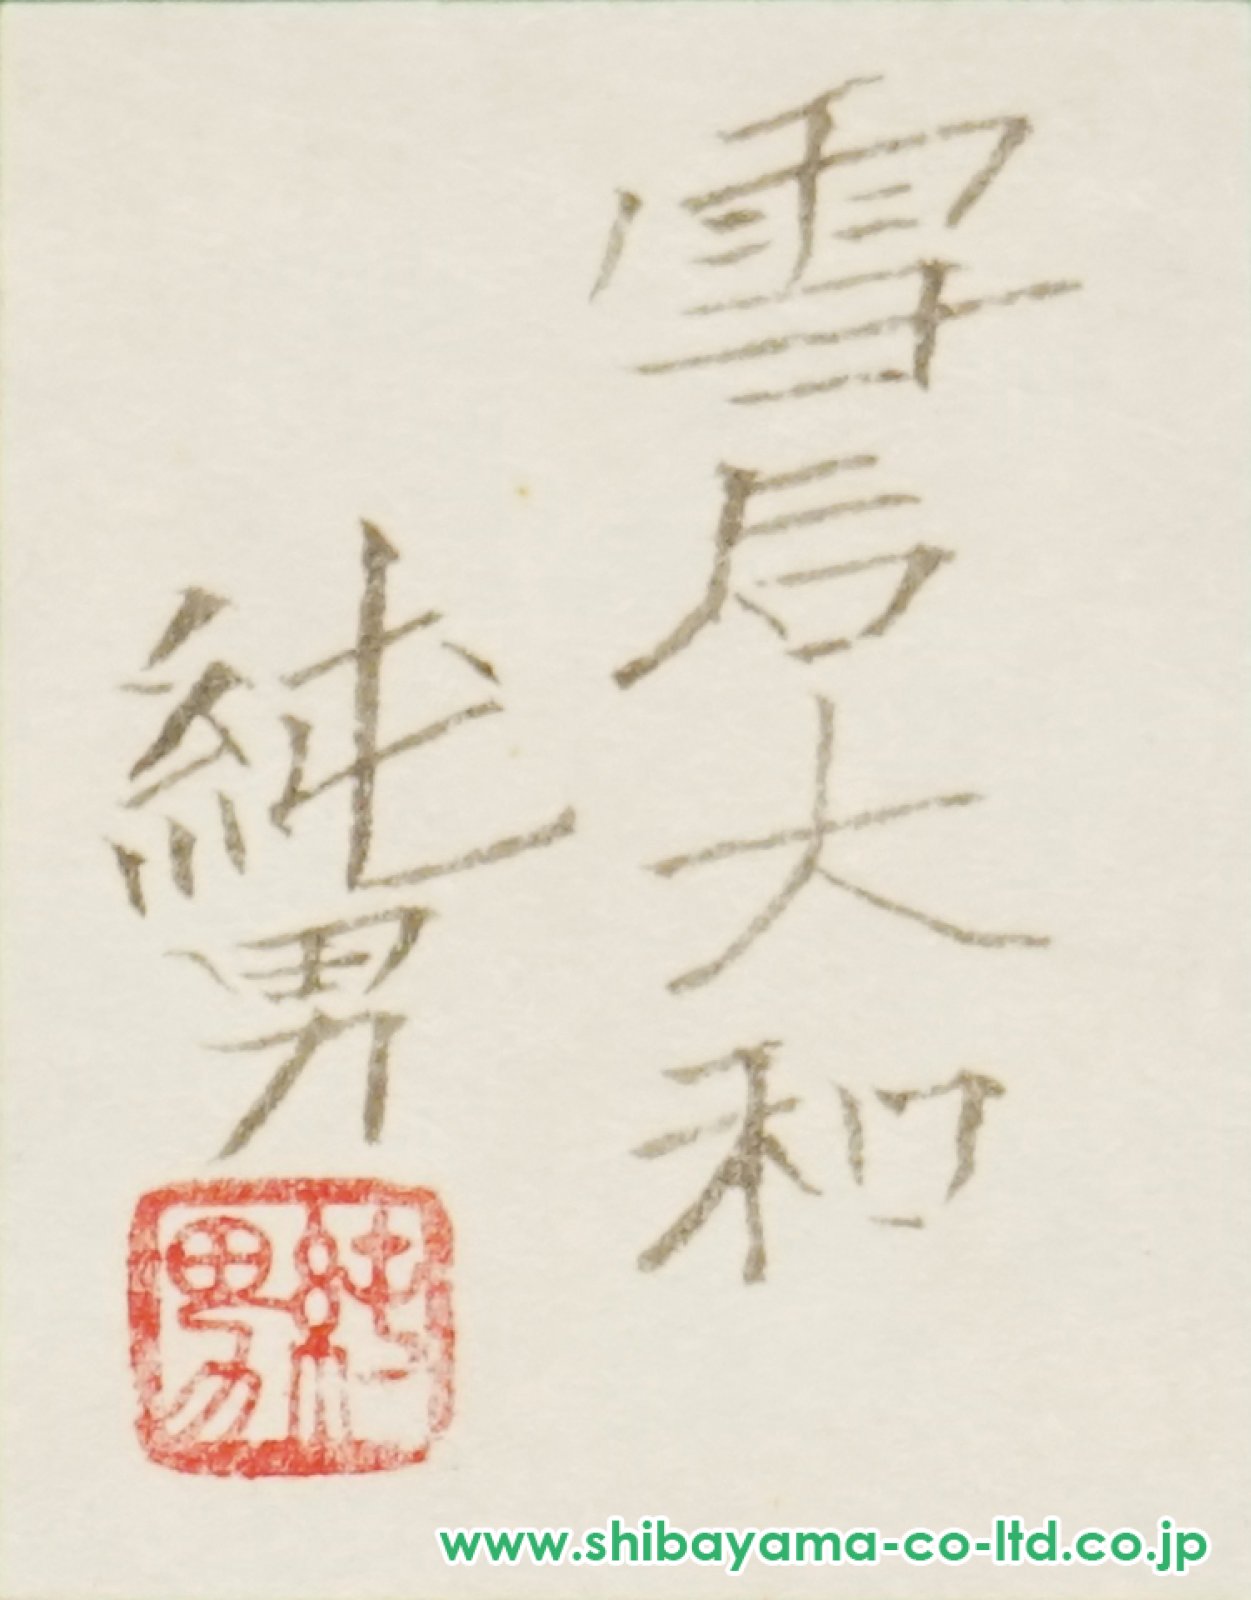 雪后大和
純男
純男
www.shibayama-co-ltd.co.jp